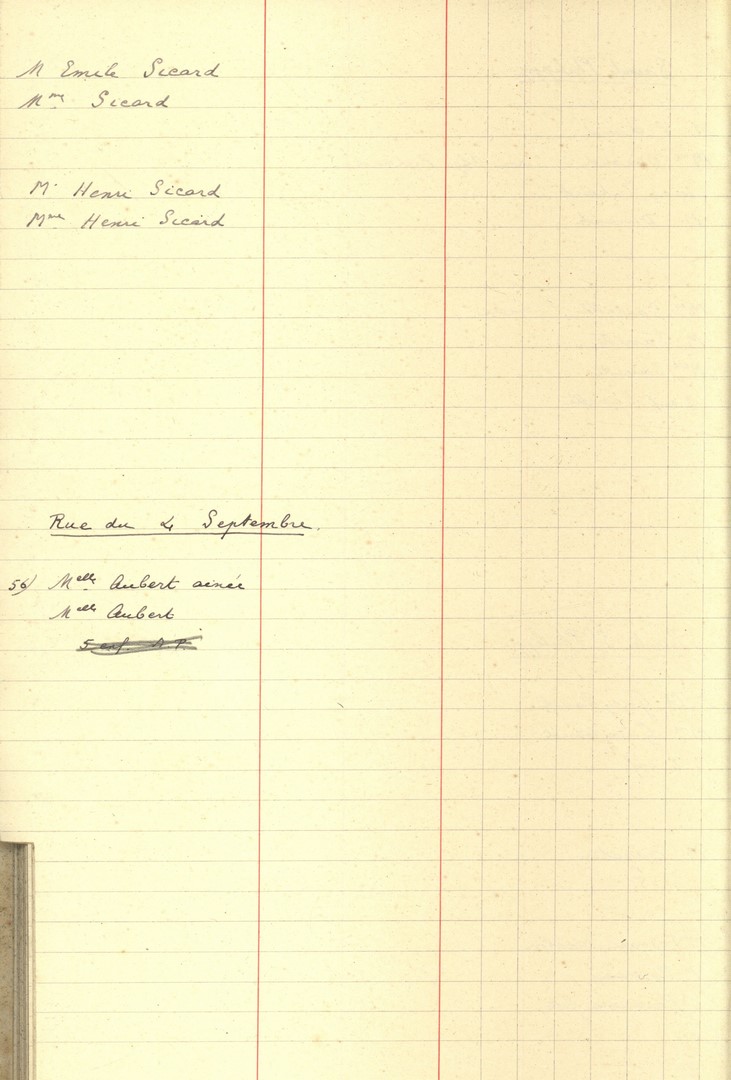 M Emile Sicard
Mme Sicard
Mr Henri Sicard
Mme Henri Sicard
Rue du 4 Septembre.
56) Melle Aubert ainée
Melle Aubert
5 enf